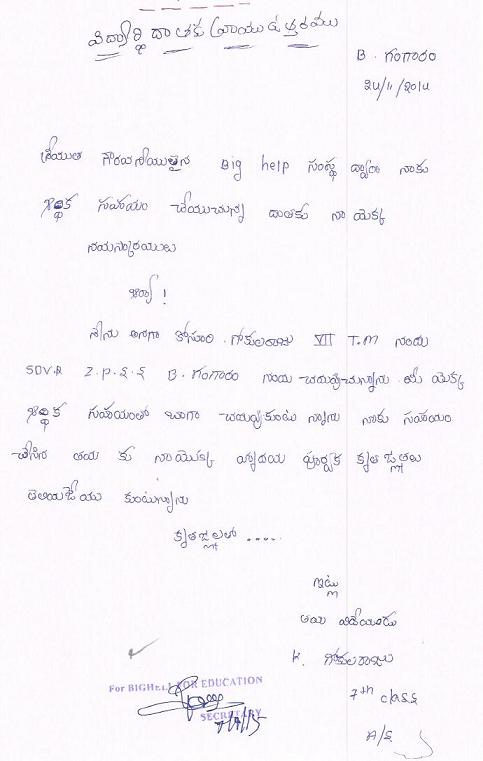 విద్యార్థి దాతకు వ్రాయు ఉత్తరము
B. గంగారం
గౌరవనీయులైన Big help సంస్థ ద్వారా నాకు
ఆర్థిక సహాయం చేయుచున్న దాతకు నా యొక్క
నమస్కారములు
ఆర్యా!
నేను అనగా కోసూరి. గోకులరాజు VII T.M నందు
Z.P.S.S B. గంగారం నందు చదువుచున్నాను మీ యొక్క
ఆర్థిక సహాయంతో బాగా చదువుకుంటున్నాను నాకు సహాయం
చేసిన తమ కు నా యొక్క హృదయ పూర్వక కృతజ్ఞతలు
తెలియజేయు కుంటున్నాను
కృతజ్ఞతలతో .....
ఇట్లు
తమ విదేయుడు
K. గోకులరాజు
7th class
For BIGHELP FOR EDUCATION
SECRETARY